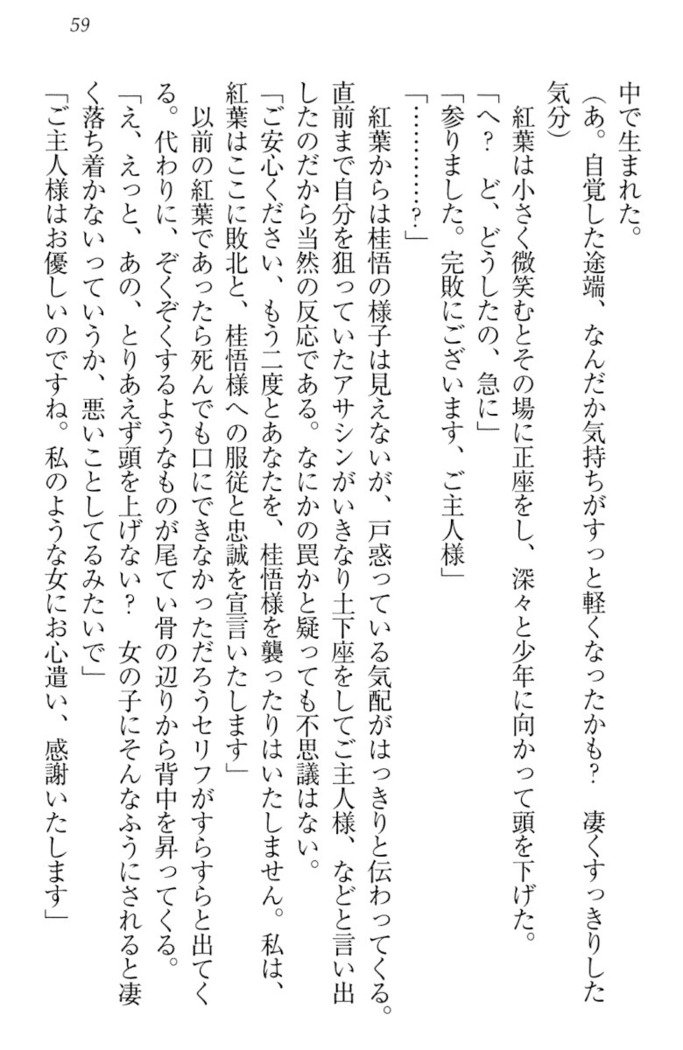 59
中で生まれた。
（あ。自覚した途端、なんだか気持ちがすっと軽くなったかも？　凄くすっきりした
気分）
　紅葉は小さく微笑むとその場に正座をし、深々と少年に向かって頭を下げた。
「へ？　ど、どうしたの、急に」
「参りました。完敗にございます、ご主人様」
「…………？」
　紅葉からは桂悟の様子は見えないが、戸惑っている気配がはっきりと伝わってくる。
直前まで自分を狙っていたアサシンがいきなり土下座をしてご主人様、などと言い出
したのだから当然の反応である。なにかの罠かと疑っても不思議はない。
「ご安心ください、もう二度とあなたを、桂悟様を襲ったりはいたしません。私は、
紅葉はここに敗北と、桂悟様への服従と忠誠を宣言いたします」
　以前の紅葉であったら死んでも口にできなかっただろうセリフがすらすらと出てく
る。代わりに、ぞくぞくするようなものが尾てい骨の辺りから背中を昇ってくる。
「え、えっと、あの、とりあえず頭を上げない？　女の子にそんなふうにされると凄
く落ち着かないっていうか、悪いことしてるみたいで」
「ご主人様はお優しいのですね。私のような女にお心遣い、感謝いたします」